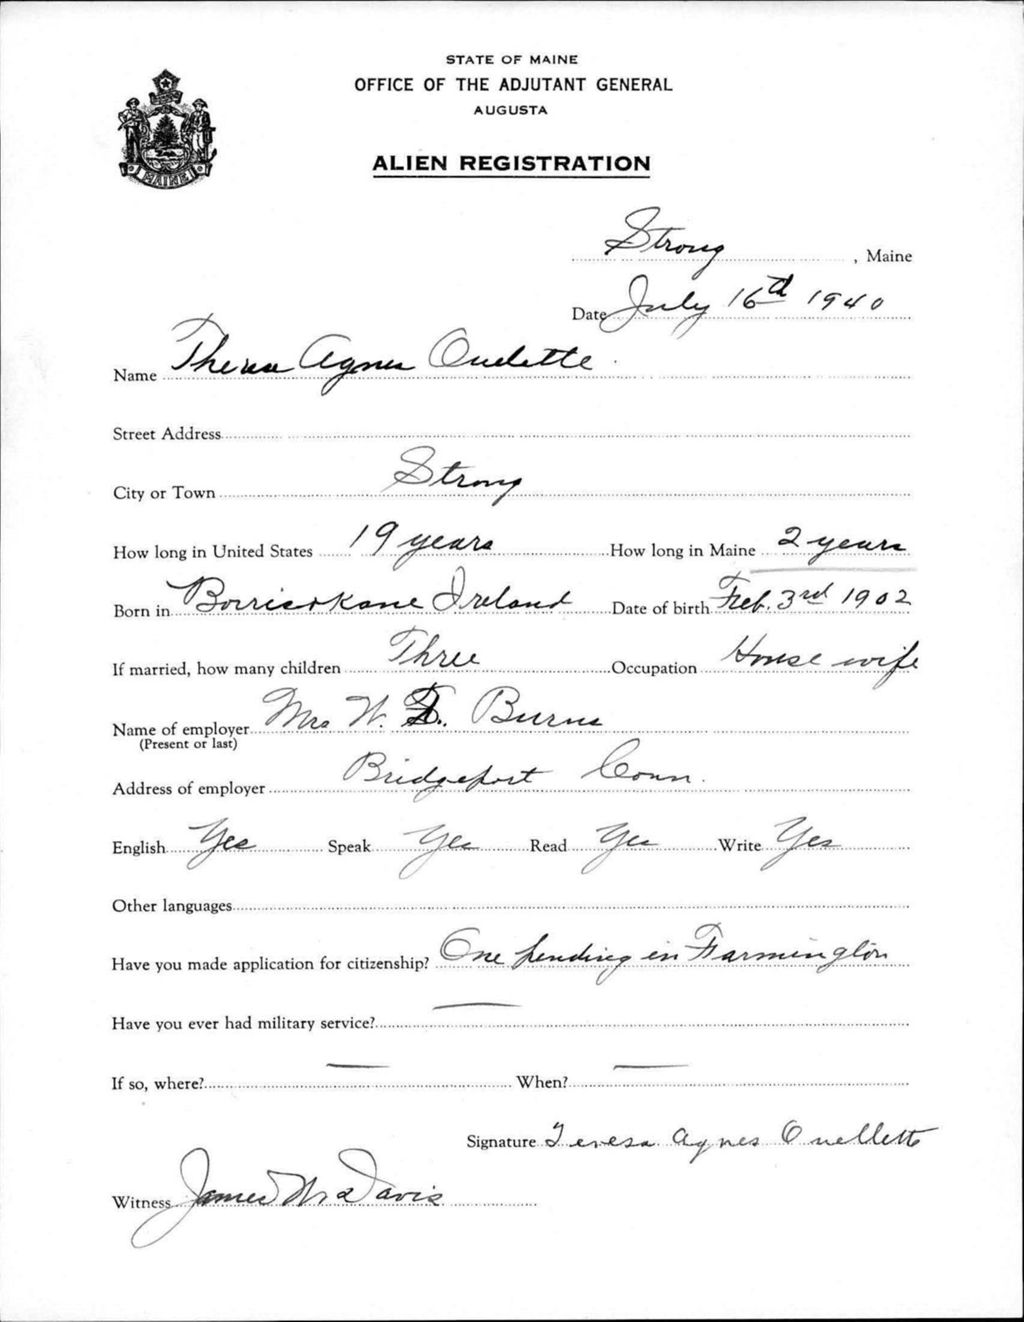 STATE OF MAINE
OFFICE OF THE ADJUTANT GENERAL
AUGUSTA
ALIEN REGISTRATION
MAINE
Strong, Maine
Date July 16th 1940
Name Theresa Agnes Ouelette
Street Address
City or Town Strong
How long in United States 19 years How long in Maine 2 years
Born in Borrisokane Ireland Date of birth Feb. 3rd 1902
If married, how many children Three Occupation House wife
Name of employer Mrs W. D. Burns
(Present or last)
Address of employer Bridgeport Conn.
English Yes Speak Yes Read Yes Write Yes
Other languages
Have you made application for citizenship? One pending in Farmington
Have you ever had military service? —
If so, where? — When? —
Signature Teresa Agnes Ouellette
Witness James Davis